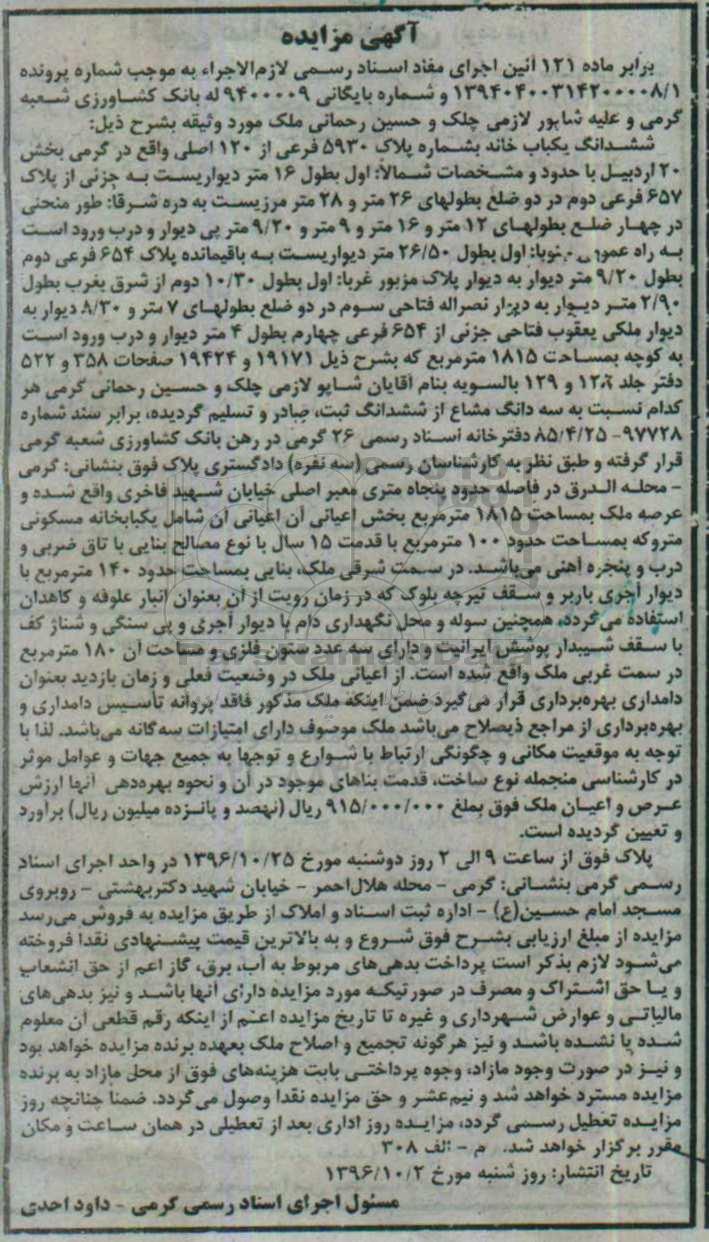 آگهی مزایده
برابر ماده ۱۲۱ آئین اجرای مفاد اسناد رسمی لازم‌الاجراء به موجب شماره پرونده
۱۳۹۴۰۴۰۰۳۱۴۲۰۰۰۰۸/۱ و شماره بایگانی ۹۴۰۰۰۰۹ له بانک کشاورزی شعبه
گرمی و علیه شاپور لازمی چلک و حسین رحمانی ملک مورد وثیقه بشرح ذیل:
ششدانگ یکباب خانه بشماره پلاک ۵۹۳۰ فرعی از ۱۲۰ اصلی واقع در گرمی بخش
۲۰ اردبیل با حدود و مشخصات شمالاً: اول بطول ۱۶ متر دیواریست به جزئی از پلاک
۶۵۷ فرعی دوم در دو ضلع بطولهای ۲۶ متر و ۲۸ متر مرزیست به دره شرقا: طور منحنی
در چهار ضلع بطولهای ۱۲ متر و ۱۶ متر و ۹ متر و ۹/۲۰ متر پی دیوار و درب ورود است
به راه عمومی جنوبا: اول بطول ۲۶/۵۰ متر دیواریست به باقیمانده پلاک ۶۵۴ فرعی دوم
بطول ۹/۲۰ متر دیوار به دیوار پلاک مزبور غربا: اول بطول ۱۰/۳۰ دوم از شرق بغرب بطول
۲/۹۰ متر دیوار به دیوار نصراله فتاحی سوم در دو ضلع بطولهای ۷ متر و ۸/۳۰ دیوار به
دیوار ملکی یعقوب فتاحی جزئی از ۶۵۴ فرعی چهارم بطول ۴ متر دیوار و درب ورود است
به کوچه بمساحت ۱۸۱۵ مترمربع که بشرح ذیل ۱۹۱۷۱ و ۱۹۴۲۴ صفحات ۳۵۸ و ۵۲۲
دفتر جلد و ۱۲۹ بالسویه بنام آقایان شاپو لازمی چلک و حسین رحمانی گرمی هر
کدام نسبت به سه دانگ مشاع از ششدانگ ثبت، صادر و تسلیم گردیده، برابر سند شماره
۹۷۷۲۸- ۸۵/۴/۲۵ دفترخانه اسناد رسمی ۲۶ گرمی در رهن بانک کشاورزی شعبه گرمی
قرار گرفته و طبق نظر به کارشناسان رسمی (سه نفره) دادگستری پلاک فوق بنشانی: گرمی
- محله الدرق در فاصله حدود پنجاه متری معبر اصلی خیابان شهید فاخری واقع شده و
عرصه ملک بمساحت ۱۸۱۵ مترمربع بخش اعیانی آن اعیانی آن شامل یکبابخانه مسکونی
متروکه بمساحت حدود ۱۰۰ مترمربع با قدمت ۱۵ سال با نوع مصالح بنایی با تاق ضربی و
درب و پنجره آهنی می‌باشد. در سمت شرقی ملک، بنایی بمساحت حدود ۱۴۰ مترمربع با
دیوار آجری باربر و سقف تیرچه بلوک که در زمان رویت از آن بعنوان انبار علوفه و کاهدان
استفاده می‌گردد، همچنین سوله و محل نگهداری دام با دیوار آجری و پی سنگی و شناژ کف
با سقف شیبدار پوشش ایرانیت و دارای سه عدد ستون فلزی و مساحت آن ۱۸۰ مترمربع
در سمت غربی ملک واقع شده است. از اعیانی ملک در وضعیت فعلی و زمان بازدید بعنوان
دامداری بهره‌برداری قرار می‌گیرد ضمن اینکه ملک مذکور فاقد پروانه تأسیس دامداری و
بهره‌برداری از مراجع ذیصلاح می‌باشد ملک موصوف دارای امتیازات سه گانه می‌باشد. لذا با
توجه به موقعیت مکانی و چگونگی ارتباط با شوارع و توجها به جمیع جهات و عوامل موثر
در کارشناسی منجمله نوع ساخت، قدمت بناهای موجود در آن و نحوه بهره‌دهی آنها ارزش
عرص و اعیان ملک فوق بمبلغ ۹۱۵/۰۰۰/۰۰۰ ریال (نهصد و پانزده میلیون ریال) برآورد
و تعیین گردیده است.
پلاک فوق از ساعت ۹ الی ۲ روز دوشنبه مورخ ۱۳۹۶/۱۰/۲۵ در واحد اجرای اسناد
رسمی گرمی بنشانی: گرمی - محله هلال‌احمر - خیابان شهید دکتربهشتی - روبروی
مسجد امام حسین(ع) - اداره ثبت اسناد و املاک از طریق مزایده به فروش می‌رسد
مزایده از مبلغ ارزیابی بشرح فوق شروع و به بالاترین قیمت پیشنهادی نقدا فروخته
می‌شود لازم بذکر است پرداخت بدهی‌های مربوط به آب، برق، گاز اعم از حق انشعاب
و یا حق اشتراک و مصرف در صورتیکه مورد مزایده دارای آنها باشد و نیز بدهی‌های
مالیاتی و عوارض شهرداری و غیره تا تاریخ مزایده اعم از اینکه رقم قطعی آن معلوم
شده یا نشده باشد و نیز هرگونه تجمیع و اصلاح ملک بعهده برنده مزایده خواهد بود
و نیز در صورت وجود مازاد، وجوه پرداختی بابت هزینه‌های فوق از محل مازاد به برنده
مزایده مسترد خواهد شد و نیم‌عشر و حق مزایده نقدا وصول می‌گردد. ضمنا چنانچه روز
مزایده تعطیل رسمی گردد، مزایده روز اداری بعد از تعطیلی در همان ساعت و مکان
مقرر برگزار خواهد شد. م - الف ۳۰۸
تاریخ انتشار: روز شنبه مورخ ۱۳۹۶/۱۰/۲
مسئول اجرای اسناد رسمی گرمی - داود احدی